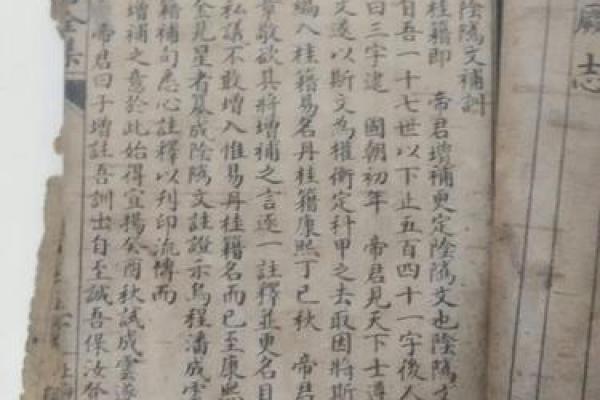 志
陰隲文補訓
桂籍即 帝君增補更定陰隲文也陰隲文
自吾一十七世以下止五百四十一字後人
曰三字逮 國朝初年 帝君見天下士遵
文遂以斯文為權衡定科甲之去取因將斯
編入桂籍易名丹桂籍康熙丁巳秋 帝君
章敬欲具將增補之言逐一註釋並更名目
私議不敢增入惟易丹桂籍名而已至康熙
金見星者纂成陰隲文註證示烏程潘成雲
籍補句悉心註釋以列印流傳而
增補之意於此始得宣揚癸酉秋試成雲遂
帝君曰子增註吾訓士自至誠吾保汝
全集